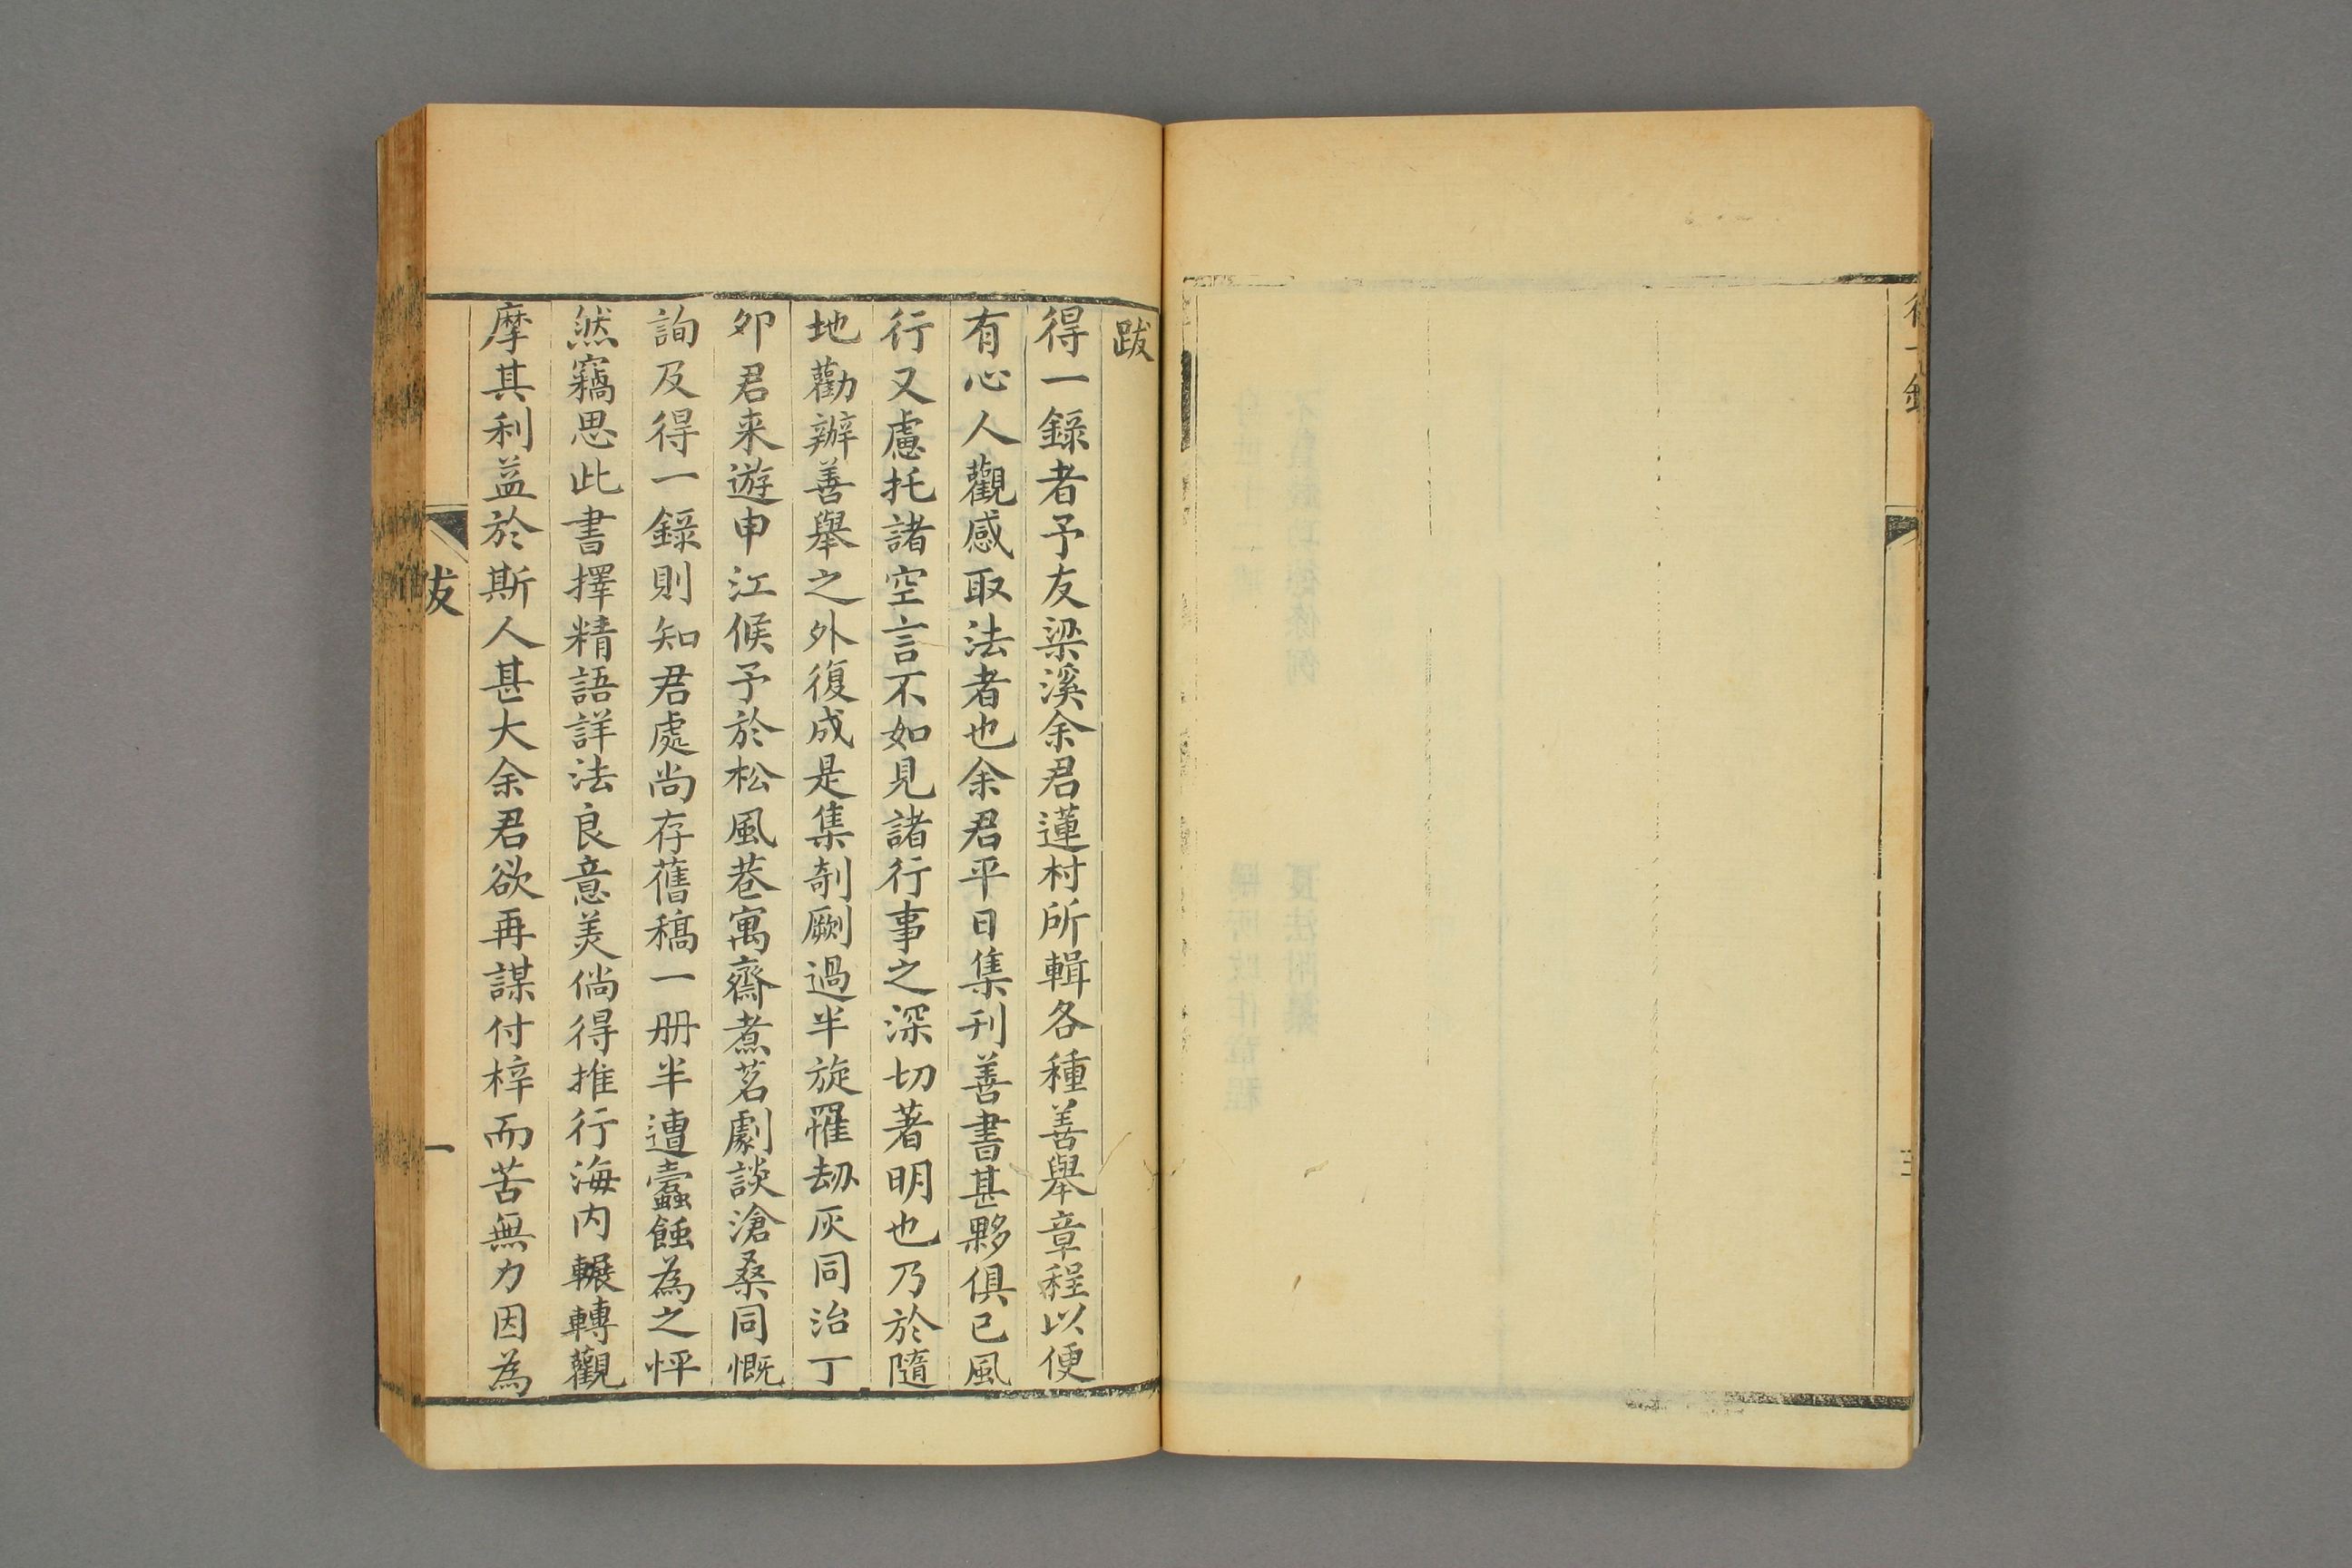 跋
得一錄者予友梁溪余君蓮村所輯各種善舉章程以便
有心人觀感取法者也余君平日集刊善書甚夥俱已風
行又慮托諸空言不如見諸行事之深切著明也乃於隨
地勸辦善舉之外復成是集剞劂過半旋罹劫灰同治丁
夘君来遊申江候予於松風巷寓齋煮茗劇談滄桑同慨
詢及得一錄則知君處尚存舊稿一册半遭蠹蝕為之怦
然竊思此書擇精語詳法良意美倘得推行海内輾轉觀
摩其利益於斯人甚大余君欲再謀付梓而苦無力因為
跋
一
得一錄